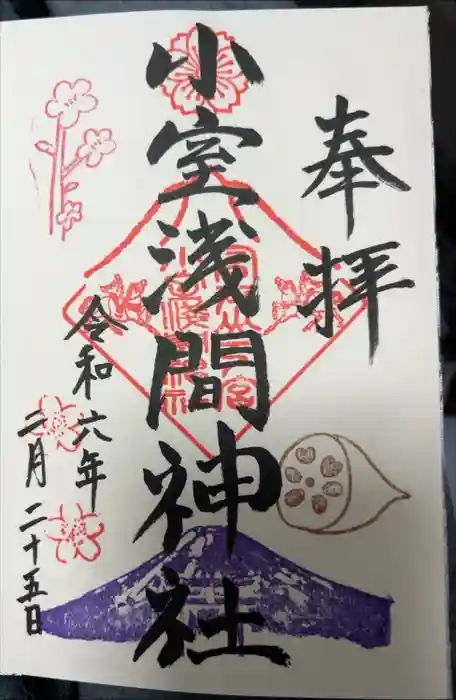 奉拝
小室浅間神社
令和六年
二月二十五日